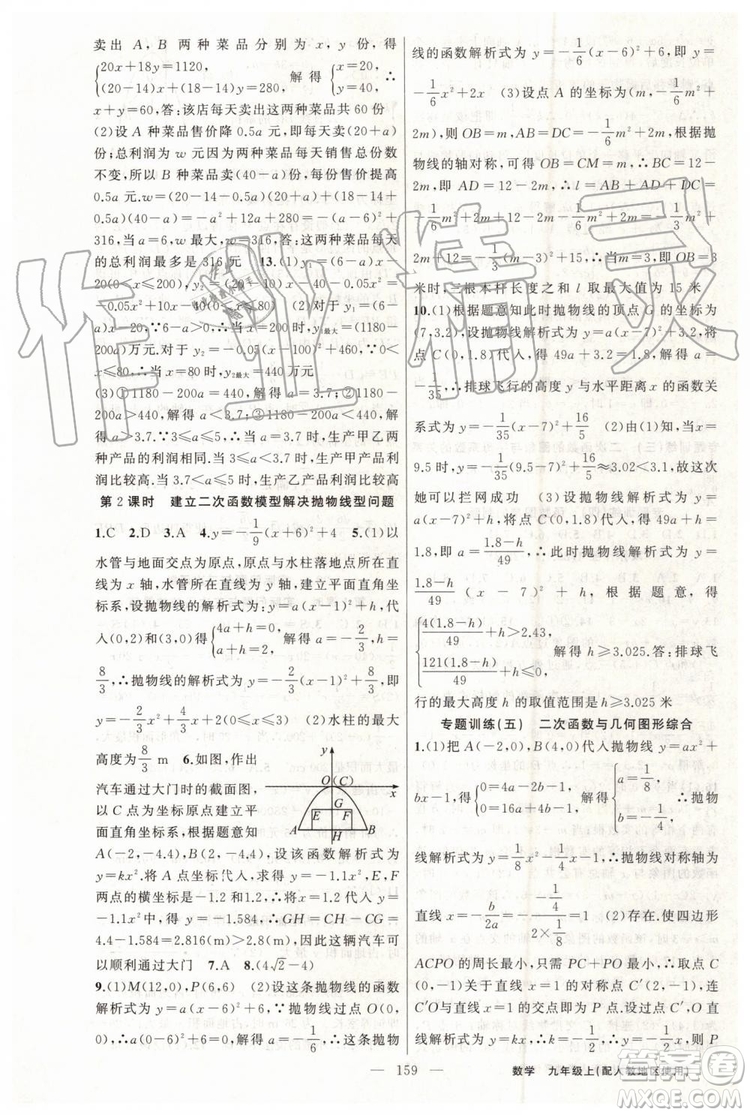 卖出 A，B 两种菜品分别为 x，y 份，得
{20x+18y=1120, (20-14)x+(18-14)y=280, 解得 {x=20, y=40, ∴
x+y=60,答:该店每天卖出这两种菜品共 60 份
(2)设 A 种菜品售价降 0.5a 元,即每天卖(20+a)
份;总利润为 w 元因为两种菜品每天销售总份数
不变,所以 B 种菜品卖(40-a)份,每份售价提高
0.5a 元. w=(20-14-0.5a)(20+a)+(18-14+
0.5a)(40-a)=-a²+12a+280=-(a-6)²+
316,当 a=6,w 最大,w=316,答:这两种菜品每天
的总利润最多是 316 元 13.(1)y₁=(6-a)x-
20(0<x≤200),y₂=10x-40-0.05x²=
-0.05x²+10x-40(0<x≤80) (2)对于 y₁=
(6-a)x-20,∵6-a>0,∴x=200 时,y₁最大=(1180-
200a)万元.对于 y₂=-0.05(x-100)²+460,∵0<
x≤80,∴x=80 时,y₂最大=440 万元
(3)①1180-200a=440,解得 a=3.7;②1180-
200a>440,解得 a<3.7;③1180-200a<440,解
得 a>3.7.∵3≤a≤5,∴当 a=3.7 时,生产甲乙两
种产品的利润相同.当 3≤a<3.7 时,生产甲产品
利润比较高.当 3.7<a≤5 时,生产乙产品利润比较高
第 2 课时 建立二次函数模型解决抛物线型问题
1.C 2.D 3.A 4.y=-1/9(x+6)²+4 5.(1)以
水管与地面交点为原点,原点与水柱落地点所在直
线为 x 轴,水管所在直线为 y 轴,建立平面直角坐
标系,设抛物线的解析式为:y=a(x-1)²+h,代
入(0,2)和(3,0)得{4a+h=0, a+h=2, 解得{a=-2/3, h=
8/3,∴抛物线的解析式为 y=-2/3(x-1)²+8/3,即
y=-2/3x²+4/3x+2(0≤x≤3) (2)水柱的最大
高度为 8/3 m 6.如图,作出
汽车通过大门时的截面图,
以 C 点为坐标原点建立平
面直角坐标系,根据题意知
y
O (C) x
G
E F
A H B
A(-2,-4.4),B(2,-4.4),设该函数解析式为
y=kx².将 B 点的坐标代入得 y=-1.1x²,E,F
两点的横坐标是-1.2 和 1.2,将 x=1.2 代入 y=
-1.1x² 中得 y=-1.584,∴GH=CH-CG=
4.4-1.584=2.816(m)>2.8m,因此这辆汽车可
以顺利通过大门 7.A 8.(4√2-4)
9.(1)M(12,0),P(6,6) (2)设这条抛物线的函数
解析式为 y=a(x-6)²+6,∵抛物线过点 O(0,
0),∴a(0-6)²+6=0,解得 a=-1/6,∴这条抛物
线的函数解析式为 y=-1/6(x-6)²+6,即 y=
-1/6x²+2x (3)设点 A 的坐标为(m,-1/6m²+
2m),则 OB=m,AB=DC=-1/6m²+2m,根据抛
物线的轴对称,可得 OB=CM=m,∴BC=12-
2m,即 AD=12-2m,∴l=AB+AD+DC=
-1/6m²+2m+12-2m-1/6m²+2m=-1/3m²+
2m+12=-1/3(m-3)²+15,∴当 m=3,即 OB=3
米时,三根木杆长度之和 l 取最大值为 15 米
10.(1)根据题意知此时抛物线的顶点 G 的坐标为
(7,3.2),设抛物线解析式为 y=a(x-7)²+3.2,
将点 C(0,1.8)代入得:49a+3.2=1.8,解得:a=
-1/35,∴排球飞行的高度 y 与水平距离 x 的函数关
系式为 y=-1/35(x-7)²+16/5 (2)由(1)知,当 x=
9.5 时,y=-1/35(9.5-7)²+16/5≈3.02<3.1,所以
她可以拦网成功 (3)设抛物线解析式为 y=
a(x-7)²+h,将点 C(0,1.8)代入,得 49a+h=
1.8,即 a=(1.8-h)/49,∴此时抛物线解析式为 y=
(1.8-h)/49 (x-7)²+h,根据题意,得:
{4(1.8-h)/49+h>2.43, 121(1.8-h)/49+h≤0, 解得:h≥3.025,答:排球飞
行的最大高度 h 的取值范围是 h≥3.025 米
专题训练(五) 二次函数与几何图形综合
1.(1)把 A(-2,0),B(4,0)代入抛物线 y=ax²+
bx-1,得{0=4a-2b-1, 0=16a+4b-1, 解得{a=1/8, b=-1/4, ∴抛物
线解析式为 y=1/8x²-1/4x-1,∴抛物线对称轴为
直线 x=-b/2a=-(-1/4)/(2×1/8)=1 (2)存在,使四边形
ACPO 的周长最小,只需 PC+PO 最小,∴取点 C
(0,-1)关于直线 x=1 的对称点 C′(2,-1),连
C′O与直线 x=1 的交点即为 P 点.设过点 C′,O 直
线解析式为 y=kx,∴k=-1/2,∴y=-1/2x,则 P
— 159 —
数学 九年级上(配人教地区使用)
作业精灵